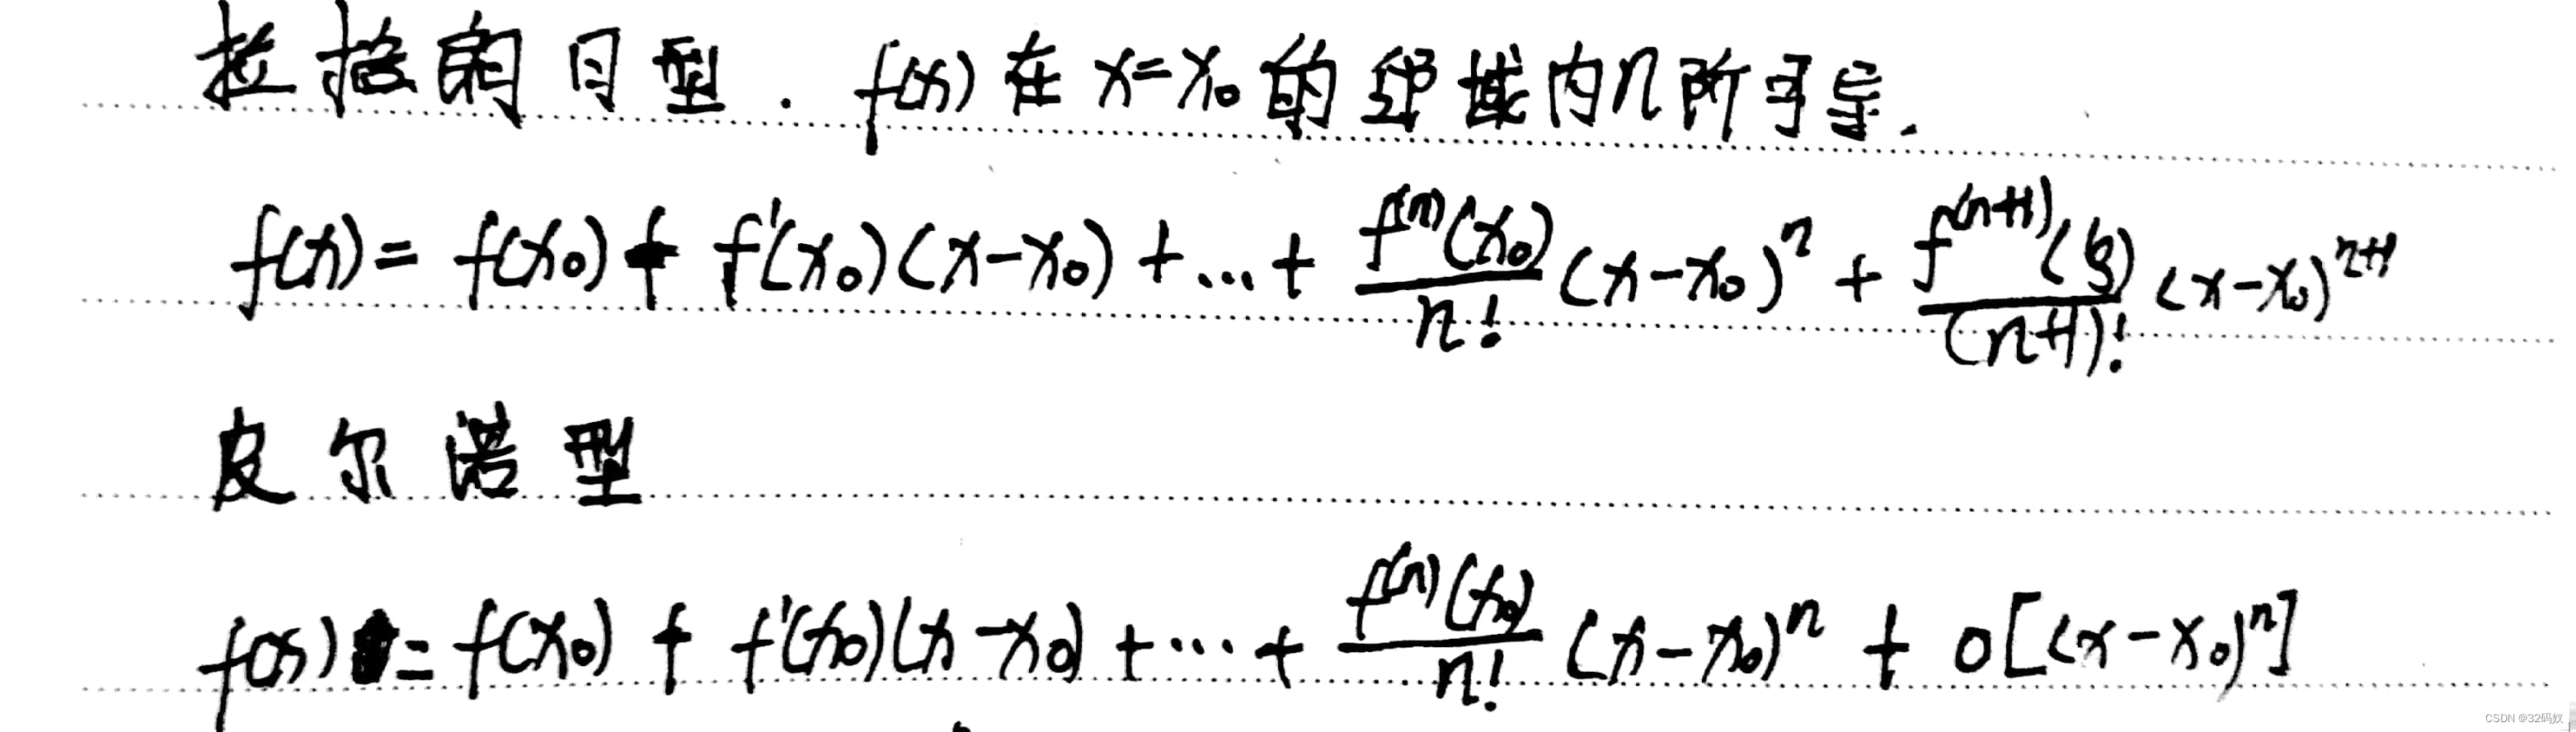 拉格朗日型. f(x)在x=x₀的邻域内n阶可导.
f(x) = f(x₀) + f'(x₀)(x-x₀) + … + \frac{f^{(n)}(x₀)}{n!}(x-x₀)^n + \frac{f^{(n+1)}(ξ)}{(n+1)!}(x-x₀)^{n+1}
皮尔诺型
f(x) = f(x₀) + f'(x₀)(x-x₀) + … + \frac{f^{(n)}(x₀)}{n!}(x-x₀)^n + o[(x-x₀)^n]
CSDN @32码奴